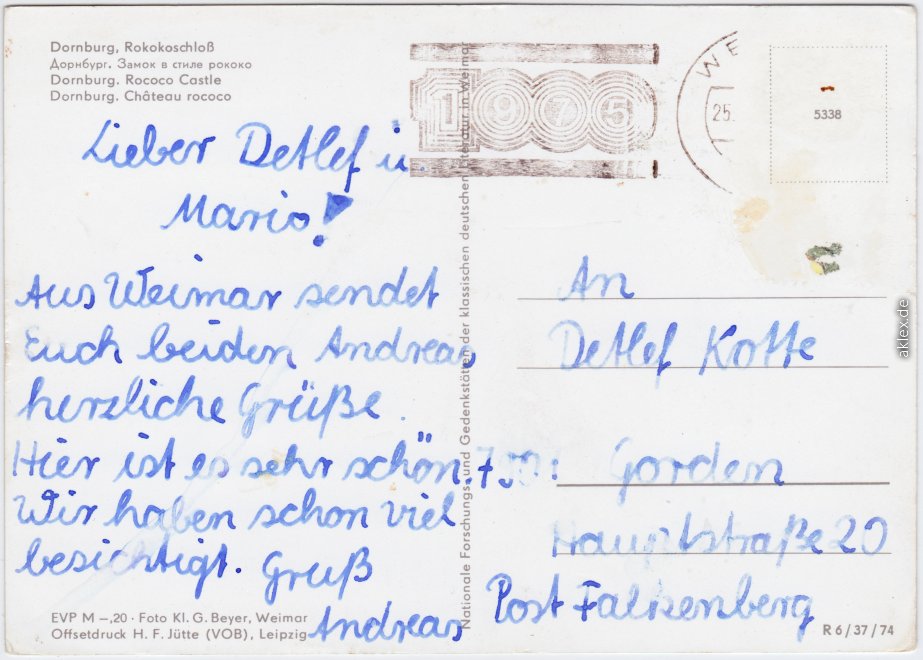 Dornburg, Rokokoschloß
Дорнбург. Замок в стиле рококо
Dornburg. Rococo Castle
Dornburg. Château rococo
1975
WE
25.
5338
Lieber Detlef u.
Mario!
Aus Weimar sendet
Euch beiden Andreas
herzliche Grüße.
Hier ist es sehr schön.
Wir haben schon viel
besichtigt. Gruß
Andreas
EVP M –,20 · Foto Kl. G. Beyer, Weimar
Offsetdruck H. F. Jütte (VOB), Leipzig
Nationale Forschungs- und Gedenkstätten der klassischen deutschen Literatur in Weimar
An
Detlef Kotte
Gorden
Hauptstraße 20
Post Falkenberg
R 6/37/74
aklex.de